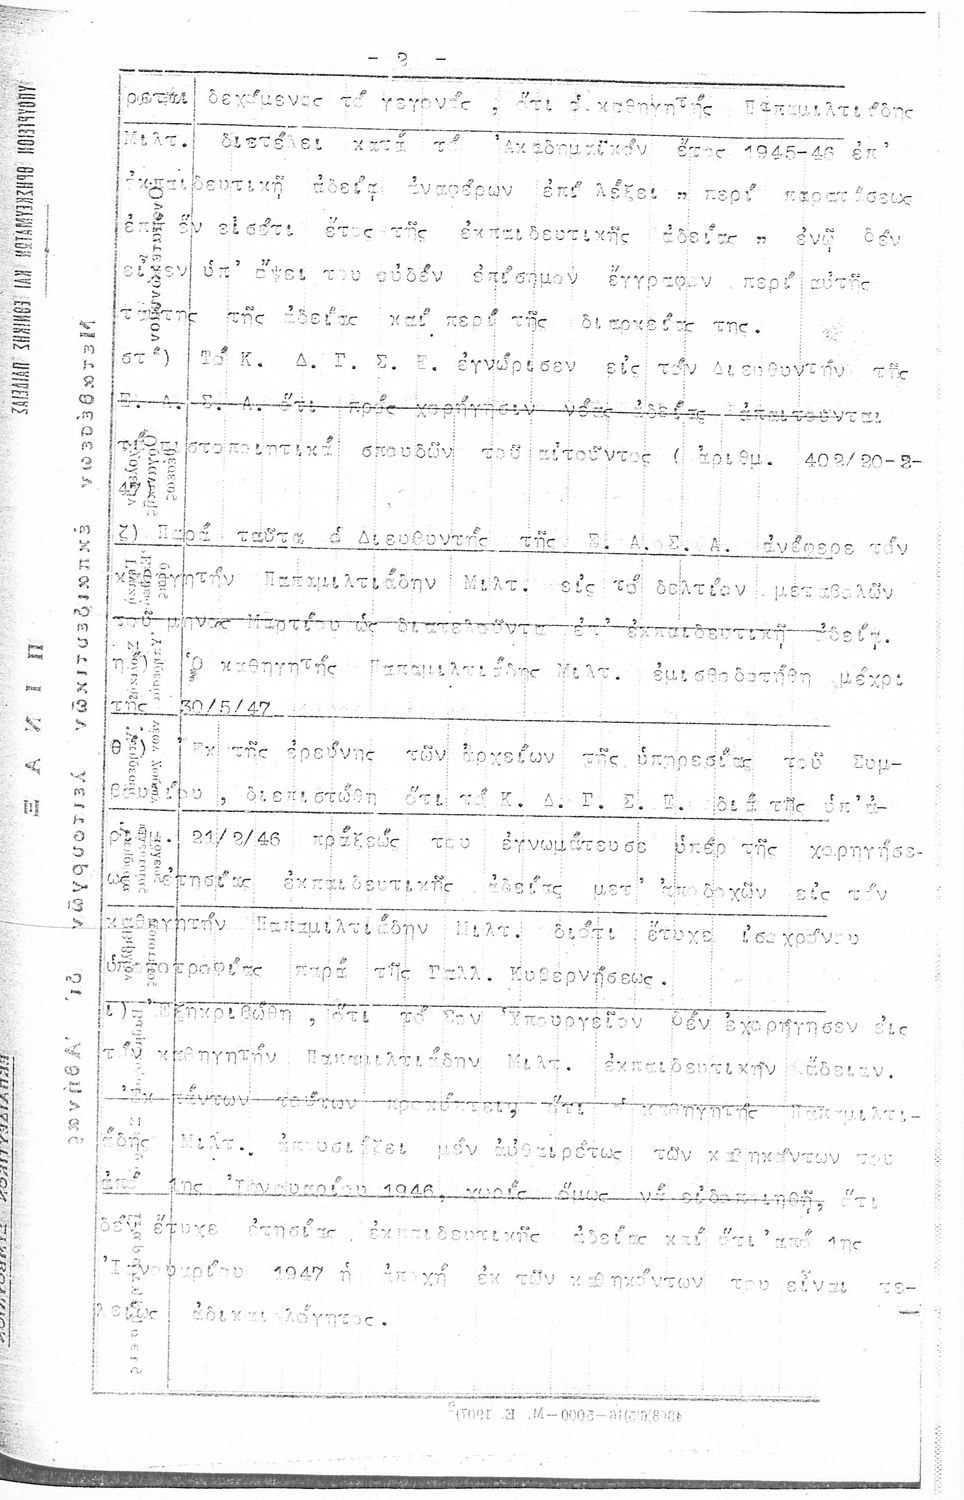 - 2 -
ρεται δεχόμενος τό γεγονός , ὅτι ὁ καθηγητής Παπαμιλτιάδης
Μιλτ. διετέλει κατά τό 'Ακαδημαϊκόν ἔτος 1945-46 ἐπ'
ἐκπαιδευτικῇ ἀδείᾳ ἀναφέρων ἐπί λέξει " περί παρατάσεως
ἐπί ἕν εἰσέτι ἔτος τῆς ἐκπαιδευτικῆς ἀδείας " ἐνῷ δέν
εἶχεν ὑπ' ὄψει του οὐδέν ἐπίσημον ἔγγραφον περί αὐτῆς
ταύτης τῆς ἀδείας καί περί τῆς διαρκείας της.
στ') Τό Κ. Δ. Γ. Σ. Ε. ἐγνώρισεν εἰς τόν Διευθυντήν τῆς
Ε. Α. Σ. Α. ὅτι πρός χορήγησιν νέας ἀδείας ἀπαιτοῦνται
τά πιστοποιητικά σπουδῶν τοῦ αἰτοῦντος ( ἀριθμ. 402/20-2-
47
ζ) Παρά ταῦτα ὁ Διευθυντής τῆς Ε. Α. Σ. Α. ἀνέφερε τόν
καθηγητήν Παπαμιλτιάδην Μιλτ. εἰς τό δελτίον μεταβολῶν
τοῦ μηνός Μαρτίου ὡς διατελοῦντα ἐπ' ἐκπαιδευτικῇ ἀδείᾳ.
η') Ὁ καθηγητής Παπαμιλτιάδης Μιλτ. ἐμισθοδοτήθη μέχρι
τῆς 30/5/47
θ') 'Εκ τῆς ἐρεύνης τῶν ἀρχείων τῆς ὑπηρεσίας τοῦ Συμ-
βουλίου , διεπιστώθη ὅτι τό Κ. Δ. Γ. Σ. Ε. διά τῆς ὑπ' ἀ-
ρι . 21/2/46 πράξεώς του ἐγνωμάτευσε ὑπέρ τῆς χορηγήσε-
ως ἐτησίας ἐκπαιδευτικῆς ἀδείας μετ' ἀποδοχῶν εἰς τόν
καθηγητήν Παπαμιλτιάδην Μιλτ. διότι ἔτυχε ἰσοχρόνου
ὑποτροφίας παρά τῆς Γαλλ. Κυβερνήσεως.
ι) 'Εξηκριβώθη , ὅτι τό Σον Ὑπουργεῖον δέν ἐχορήγησεν εἰς
τόν καθηγητήν Παπαμιλτιάδην Μιλτ. ἐκπαιδευτικήν ἄδειαν.
'Εκ πάντων τούτων προκύπτει, ὅτι ὁ καθηγητής Παπαμιλτι-
άδης Μιλτ. ἀπουσιάζει μέν αὐθαιρέτως τῶν καθηκόντων του
ἀπό 1ης 'Ιανουαρίου 1946, χωρίς ὅμως νά εἰδοποιηθῇ, ὅτι
δέν ἔτυχε ἐτησίας ἐκπαιδευτικῆς ἀδείας καί ὅτι ἀπό 1ης
'Ιανουαρίου 1947 ἡ ἀποχή ἐκ τῶν καθηκόντων του εἶναι τε-
λείως ἀδικαιολόγητος.
ΥΠΟΥΡΓΕΙΟΝ ΘΡΗΣΚΕΥΜΑΤΩΝ ΚΑΙ ΕΘΝΙΚΗΣ ΠΑΙΔΕΙΑΣ
ΠΙΝΑΞ
Μεταθέσεων ἐκπαιδευτικῶν λειτουργῶν δι' Ἀθήνας
Ὀνοματεπώνυμον